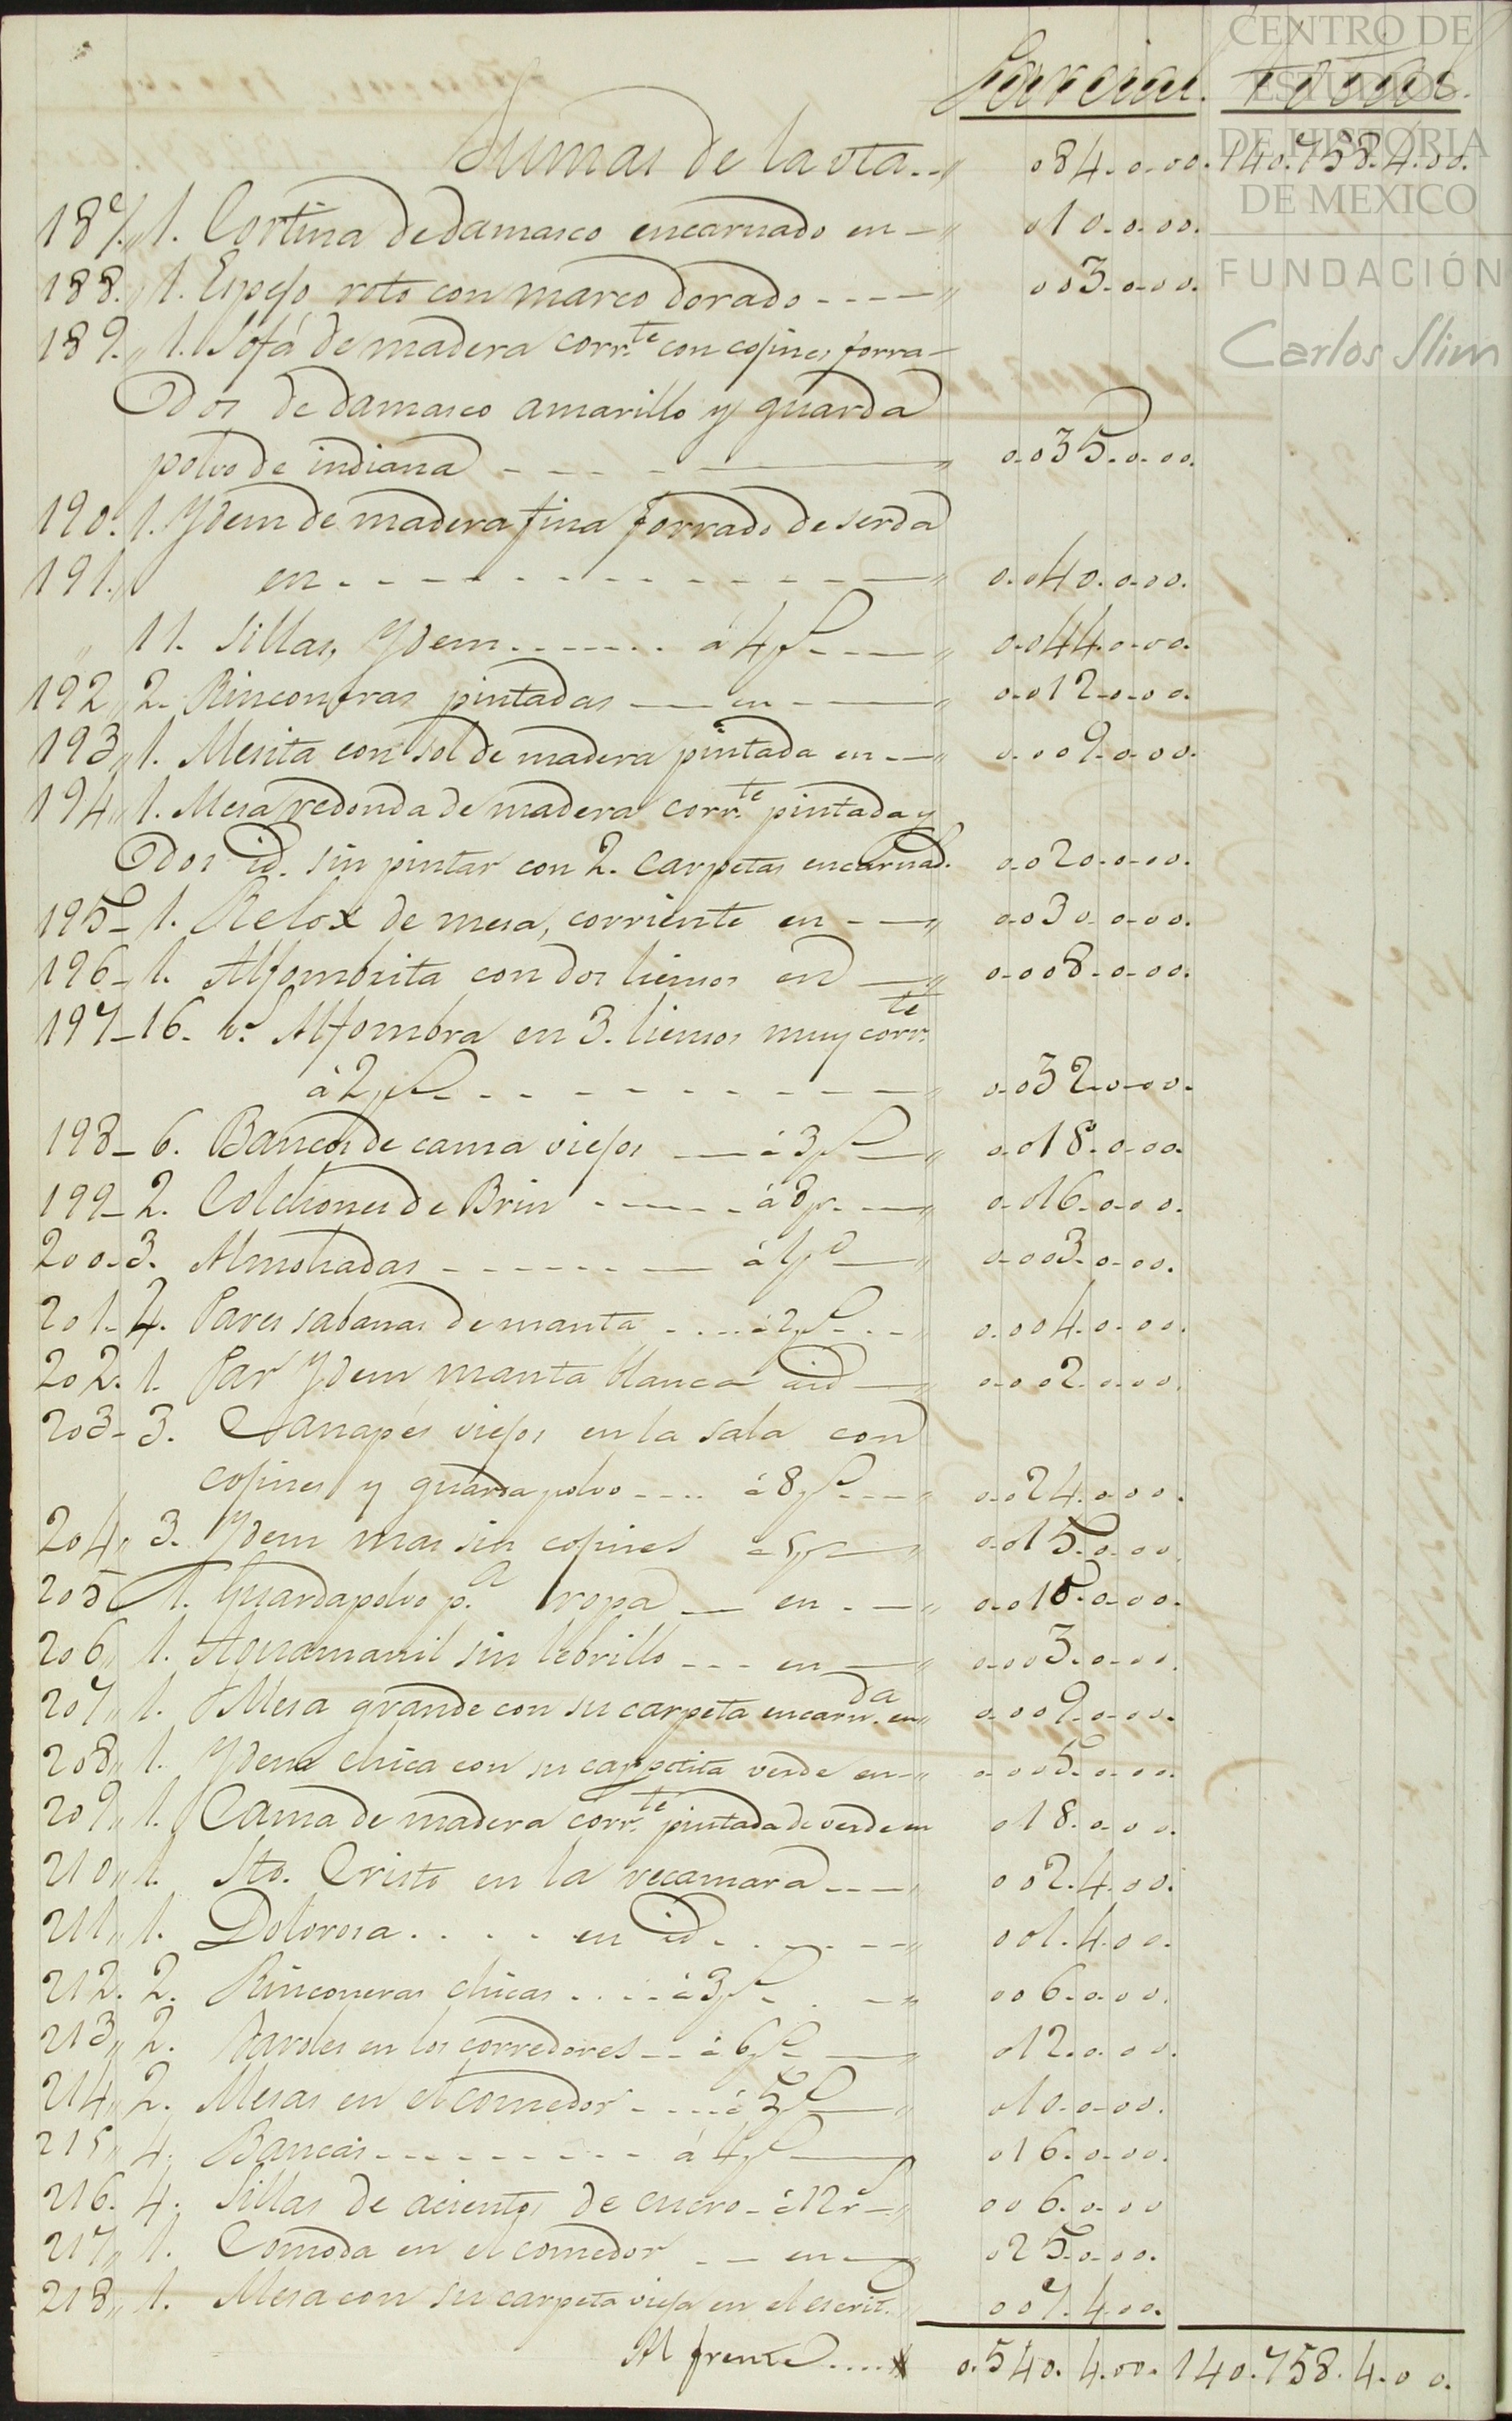 CENTRO DE
ESTUDIOS
DE HISTORIA
DE MEXICO
FUNDACIÓN
Carlos Slim
Parcial. Total.
Sumas de la vta. „ 084.0.00. 140.758.4.00.
187. „ 1. Cortina de damasco encarnado en — „ 010.0.00.
188. „ 1. Espejo roto con marco dorado - - - - „ 003.0.00.
189. „ 1. Sofá de madera corr.te con cojines forra-
dos de damasco amarillo y guarda
polvo de indiana - - - - „ 0.035.0.00.
190. 1. Ydem de madera fina forrado de serda
191. „ en - - - - - - - - „ 0.040.0.00.
„ 11. Sillas, Ydem . . . . . . á 4 ps - - - „ 0.044.0.00.
192 „ 2. Rinconeras pintadas — en - — „ 0.012.0.00.
193 „ 1. Mesita consol de madera pintada en - — „ 0.009.0.00.
194 „ 1. Mesa redonda de madera corr.te pintada y
dos id. sin pintar con 2. carpetas encarnad. 0.020.0.00.
195 - 1. Relox de mesa, corriente en - — „ 0.030.0.00.
196 - 1. Alfombrita con dos liensos en — „ 0.008.0.00.
197 - 16. v.s Alfombra en 3. liensos muy corr.te
á 2 ps - - - - - - - - „ 0.032.0.00.
198 - 6. Bancos de cama viejos — á 3 ps — „ 0.018.0.00.
199 - 2. Colchones de Brin - - - - - á 8 ps. — „ 0.016.0.00.
200 - 3. Almohadas - - - - - - — á 1 po — „ 0.003.0.00.
201 - 4. Pares sabanas de manta - . . . á 2 ps - . - „ 0.004.0.00.
202. 1. Par Ydem manta blanca á id — „ 0.002.0.00.
203 - 3. Canapés viejos en la sala con
cojines y guardapolvo - - . . á 8 ps - - - „ 0.024.0.00.
204 „ 3. Ydem mas sin cojines á 5 ps — „ 0.015.0.00.
205 1. Guardapolvo p.a ropa — en - — „ 0.018.0.00.
206 „ 1. Aguamanil sin lebrillo - - - en — „ 0.003.0.00.
207 „ 1. Mesa grande con su carpeta encarn.da en „ 0.009.0.00.
208 „ 1. Ydem chica con su carpetita verde en - „ 0.005.0.00.
209 „ 1. Cama de madera corr.te pintada de verde en 018.0.00.
210 „ 1. Sto. Cristo en la recamara - - — „ 002.4.00.
211 „ 1. Dolorosa . . . . en id - . - . - - „ 001.4.00.
212. 2. Rinconeras chicas . . . - á 3 ps - . - „ 006.0.00.
213 „ 2. Faroles en los corredores - - á 6 ps — „ 012.0.00.
214 „ 2. Mesas en el comedor - . . . á 5 ps — „ 010.0.00.
215 „ 4. Bancas - - - - - - - - á 4 ps — 016.0.00.
216. 4. Sillas de acientos de cuero - á 12 r.s - „ 006.0.00
217 „ 1. Comoda en el comedor - — en — 025.0.00.
218 „ 1. Mesa con su carpeta vieja en el escrit. „ 007.4.00.
Al frente . . . . 0.540.4.00. 140.758.4.00.